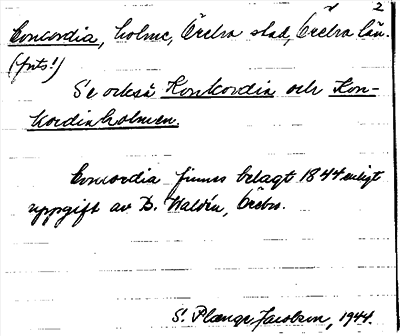 2
Concordia, holme, Örebro stad, Örebro län.
(frts!)
Se också Konkordia och Kon-
kordiaholmen.
Concordia finnes belagt 1844 enligt
uppgift av B. Waldén, Örebro.
S. Plænge Jacobson, 1944.